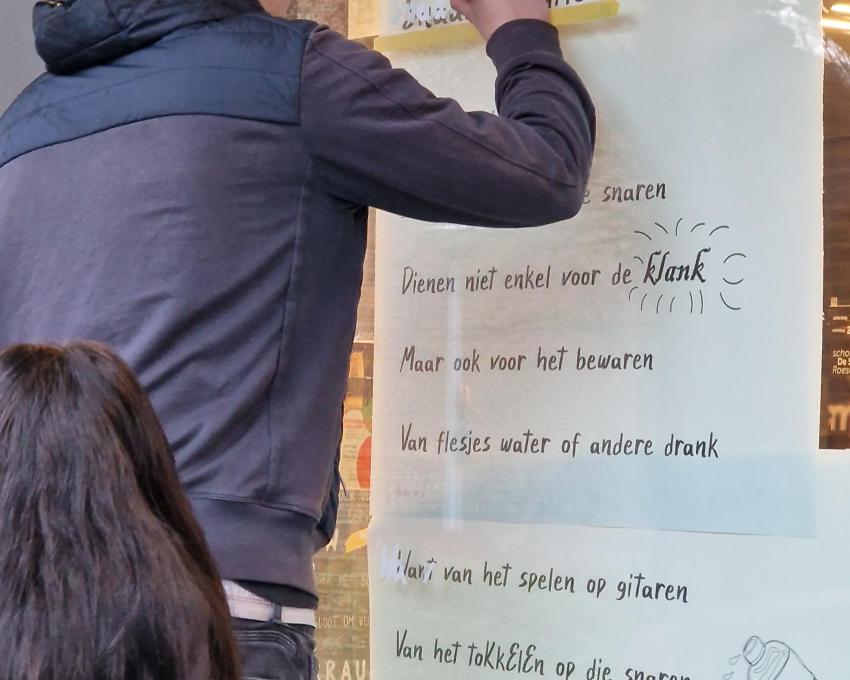 snaren
Dienen niet enkel voor de klank
Maar ook voor het bewaren
Van flesjes water of andere drank
Want van het spelen op gitaren
Van het tokkelen op die snaren